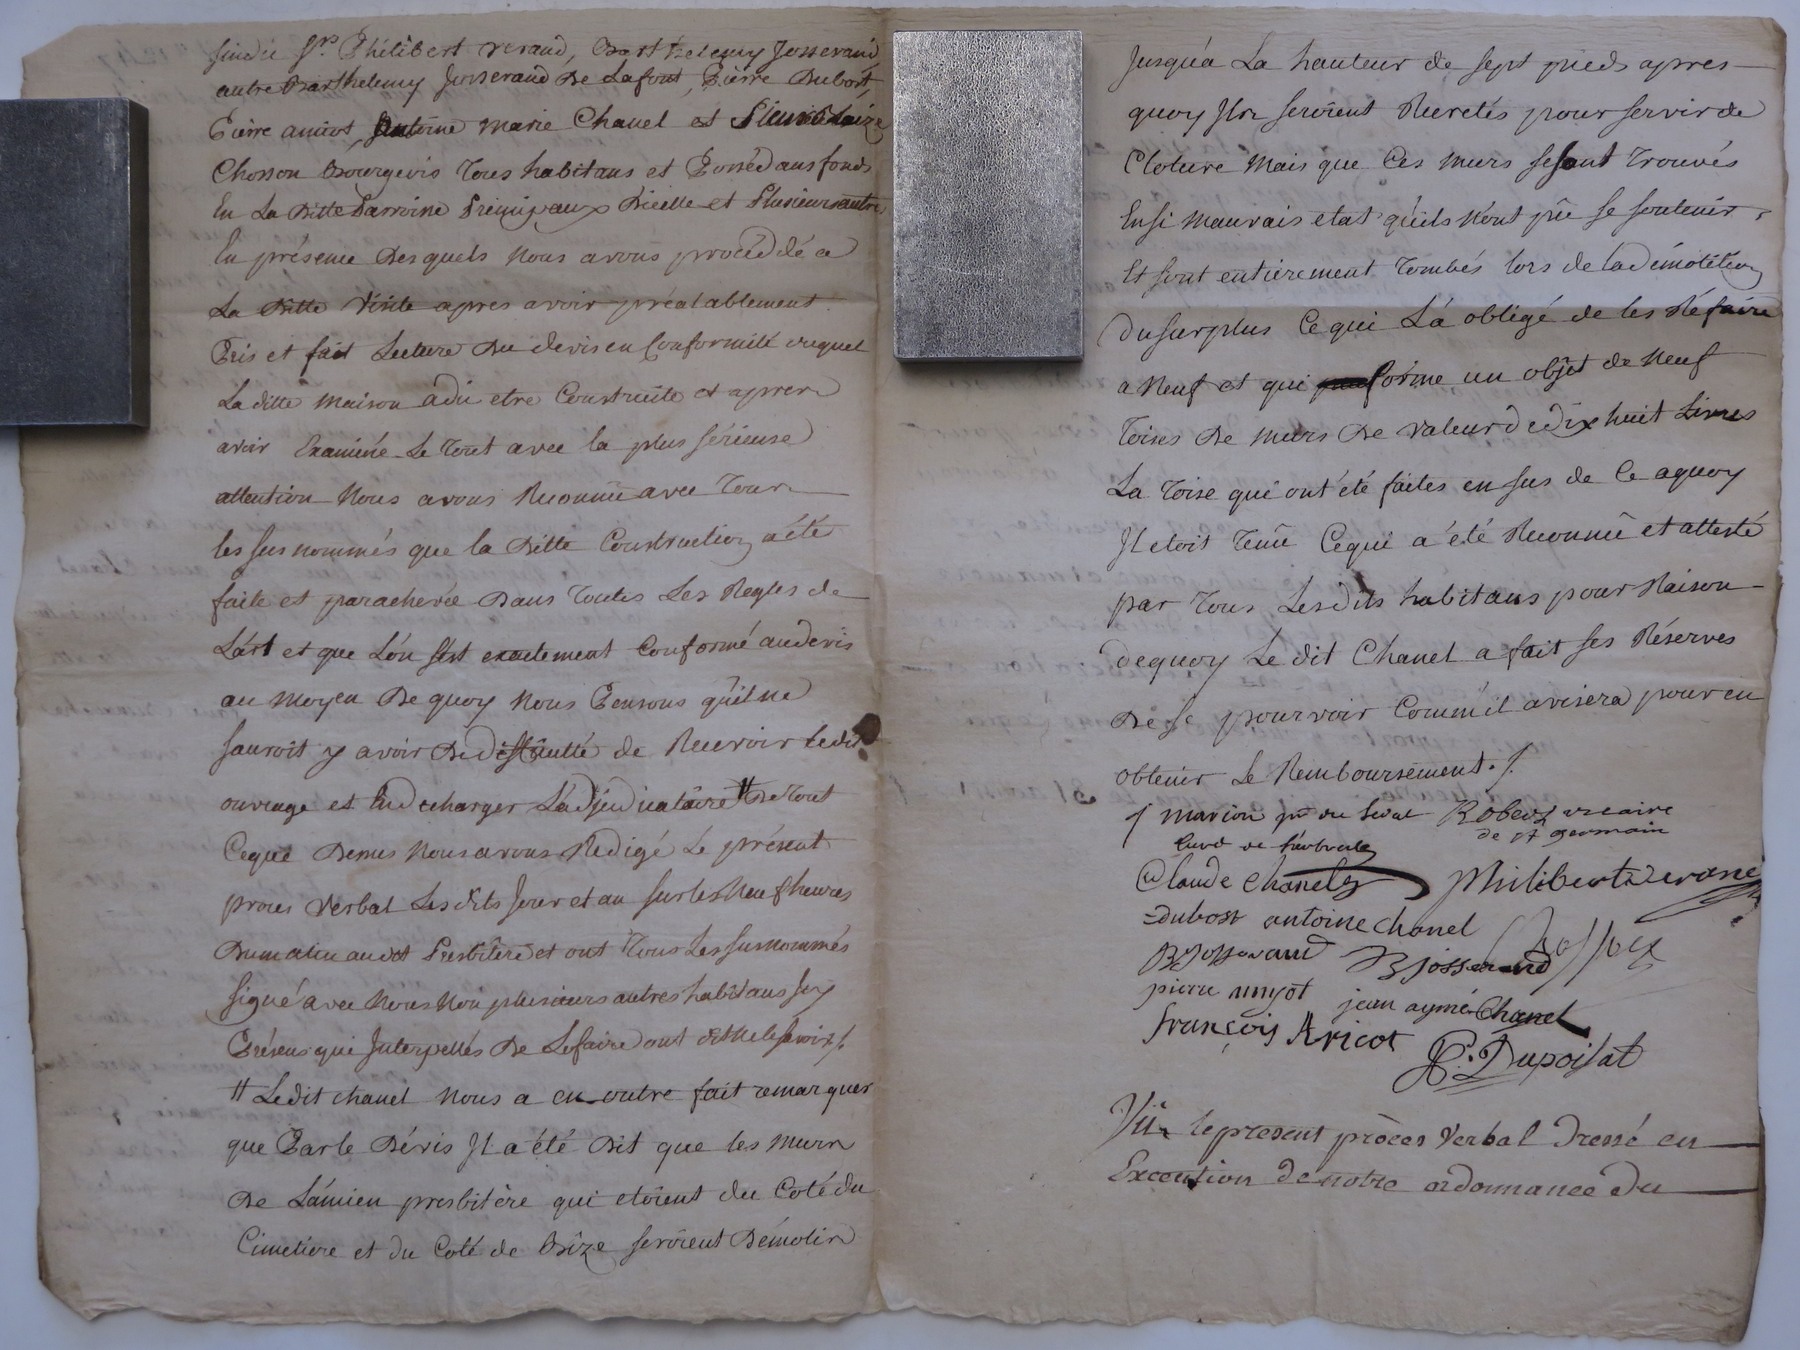 sindic Srs Philibert verand, Barthelemy Josserand
autre Barthelemy Josserand De Lafont, Pierre Dubost,
Pierre amiot, Antoine marie Chanel et Sieur Blaize
Chosson Bourgeois Tous habitans et Possédans fonds
En La Ditte Parroisse Principaux D'icelle et Plusieurs autre
En présence Desquels Nous avons procéddé a
La Ditte Visite apres avoir préalablement
Pris et fait Lecture Du devis en Conformité duquel
La ditte Maison a dû etre Construite et apres
avoir Examiné Le Tout avec la plus sérieuse
attention Nous avons Reconnû avec Tous
les sus nommés que la Ditte Construction a été
faite et parachevée Dans Toutes Les Regles de
L'art et que L'on s'est exactement Conformé au devis
au moyen De quoy Nous Pensons qu'il ne
sauroit y avoir De difficulté de Recevoir Ledit
ouvrage et End echarger L'adjudicataire # De Tout
Ceque Dessus Nous avons Rédigé Le présent
proces Verbal Lesdits Jour et an sur les Neuf heures
Du matin au dit Presbitère et ont Tous Les susnommés
signé avec Nous Non plusieurs autres habitans Icy
Présens qui Interpellés De Le faire ont dit Ne le savoir ./.
# Ledit chanel Nous a en outre fait remarquer
que Par le Dévis Il a été Dit que les Murs
De L'ancien presbitère qui etoient du Coté du
Cimetiere et du Coté de Bize seroient Démolis
Jusqu'à La hauteur de sept pieds apres
quoy Ils seroient Recretés pour servir de
Cloture Mais que Ces Murs se sont Trouvés
En si Mauvais etat qu'ils N'ont pû se soutenir,
Et sont entièrement Tombés lors de la démolition
Du surplus Ce qui L'a obligé de les Réfaire
a Neuf et qui forme un objet de Neuf
Toises De Murs De Valeur de dix huit Livres
La Toise qui ont été faites en sus de Ce a quoy
Il etoit Tenû Ce qui a été Reconnû et attesté
par Tous Lesdits habitans pour Raison
De quoy Le dit Chanel a fait ses Réserves
De se pourvoir Comm'il avisera pour en
obtenir Le Remboursement ./.
/ marion
Robert vicaire
de st germain
Curé de
Claude Chanel
Philibert Verand
Dubost antoine Chanel
B Josserand B josserand
pierre amyot jean aymé Chanel
françois Aricot
Dupoisat
Vû le present procès Verbal Dressé en
Execution de notre ordonnance du